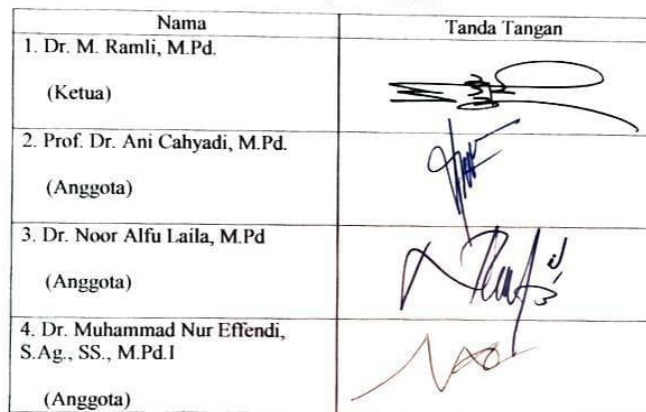 Nama
Tanda Tangan
1. Dr. M. Ramli, M.Pd.
(Ketua)
2. Prof. Dr. Ani Cahyadi, M.Pd.
(Anggota)
3. Dr. Noor Alfu Laila, M.Pd
(Anggota)
4. Dr. Muhammad Nur Effendi,
S.Ag., SS., M.Pd.I
(Anggota)